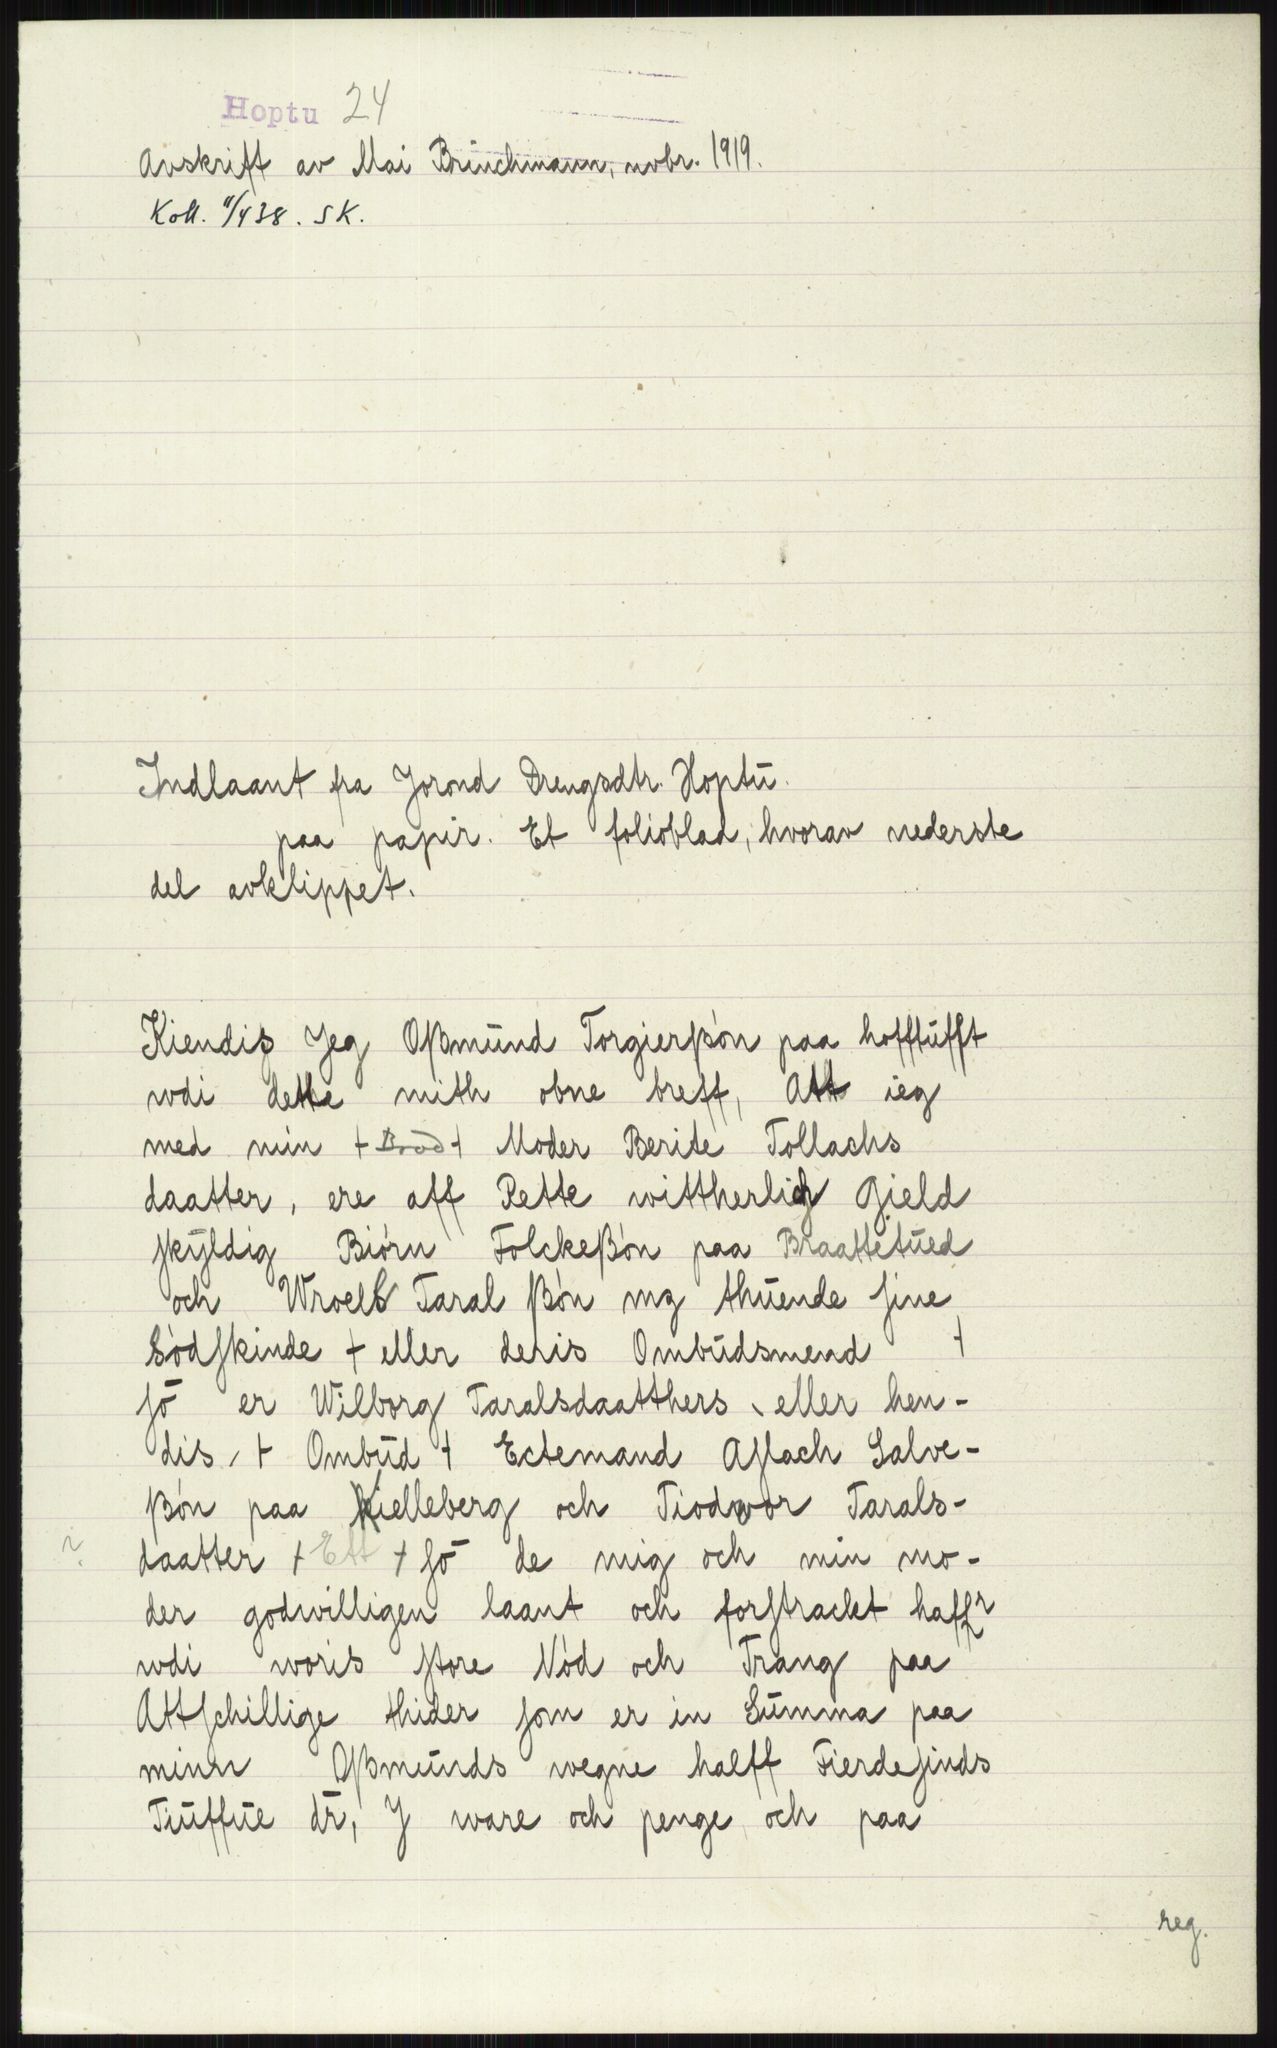 Hoptu 24
Avskrift av Mai Brünchmann, novbr. 1919.
Koll. 11/4 38. SK.
Indlaant fra Jorond Drengsdtr. Hoptŭ.
paa papir. Et folioblad, hvorav nederste
del avklippet.
Kiendis Jeg Oßmŭnd Torgierßón paa hofftŭfft
wdi dette mith obne breff, Att ieg
med min + Brod + Moder Berite Tollachs
daatter, ere aff Rette wittherlig Gield
skyldig Biórn Folckeßón paa Braattetŭed
och Wroels Taral ßón mz thŭende sine
Sódskinde + eller deris Ombŭdsmend +
só er Wilborg Taralsdaatthers, eller hen-
dis, + Ombŭd + Ectemand Aslach Salve-
ßón paa Kielleberg och Tiodwor Tarals-
? daatter + Ett + só de mig och min mo-
der godwilligen laant och forstrackt haffr
wdi woris store Nód och Trang paa
Attschillige thider som er in Sŭmma paa
minn Oßmŭnds wegne halff Fierdesinds
Tiŭffŭe dr, J ware och penge och paa
reg.